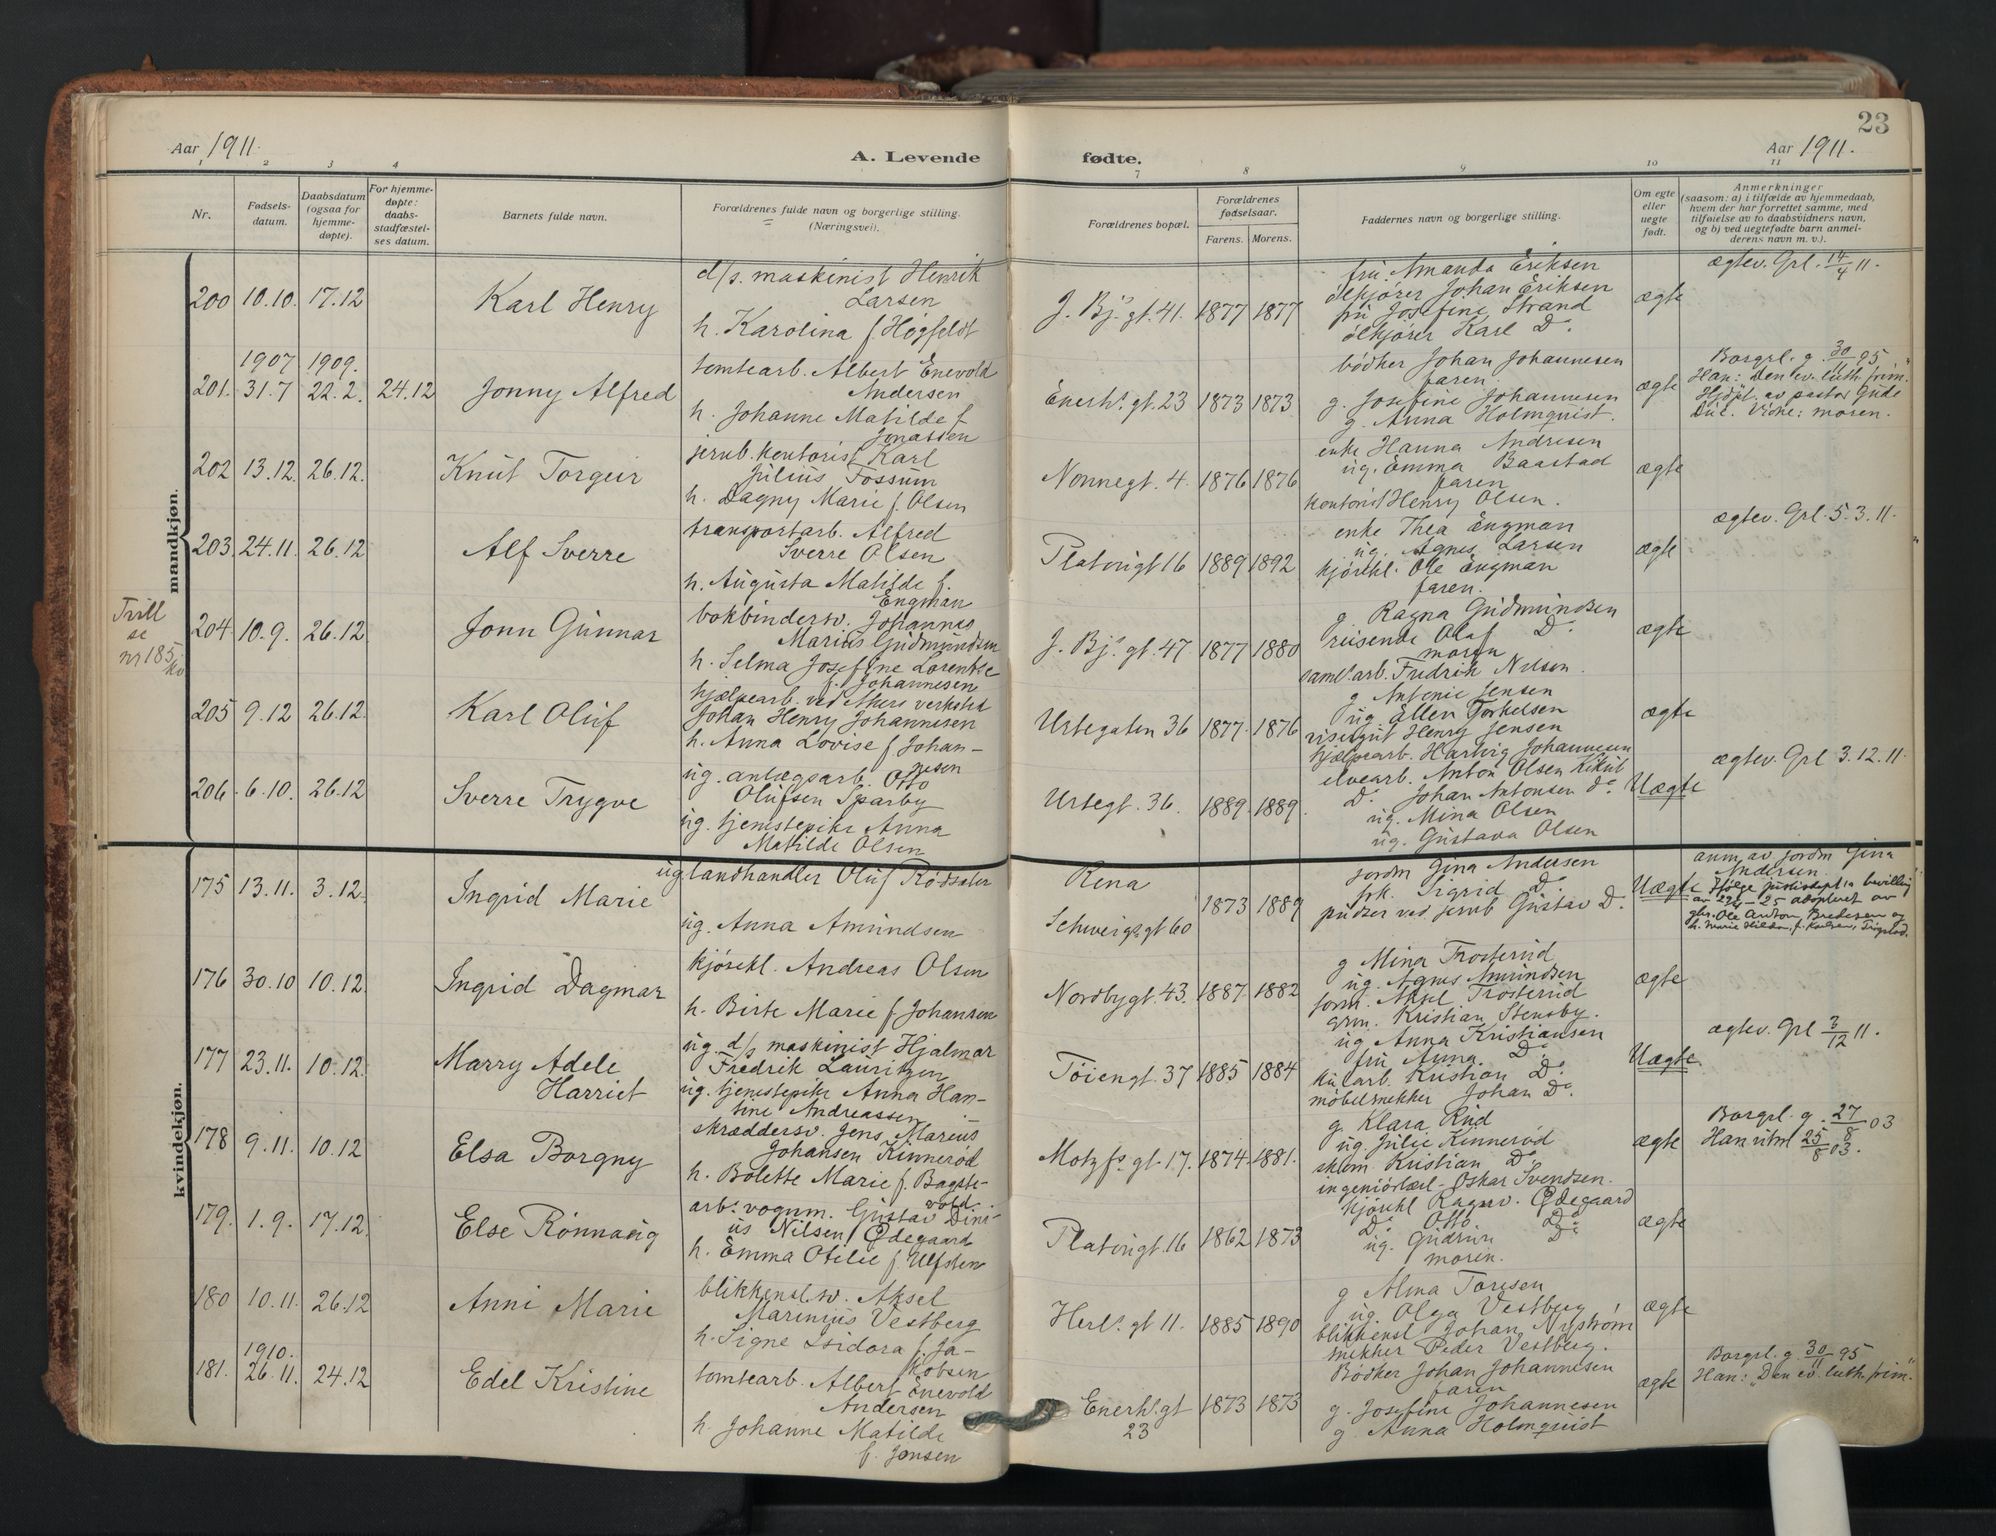 Aar 1911.
A. Levende fødte.
Aar 1911.
23
1 2 3 4 7 8 9 10 11
Nr.
Fødsels-
datum.
Daabsdatum
(ogsaa for
hjemme-
døpte).
For hjemme-
døpte:
daabs-
stadfæstel-
ses datum.
Barnets fulde navn.
Forældrenes fulde navn og borgerlige stilling.
(Næringsvei).
Forældrenes bopæl.
Forældrenes
fødselsaar.
Farens. Morens.
Faddernes navn og borgerlige stilling.
Om egte
eller
uegte
født.
Anmerkninger
(saasom: a) i tilfælde av hjemmedaab,
hvem der har forrettet samme, med
tilføielse av to daabsvidners navn,
og b) ved uegtefødte barn anmel-
derens navn m. v.).
mandkjøn.
200 10.10. 17.12 Karl Henry
d/s. maskinist Henrik
Larsen
h. Karolina f. Høgfeldt
J. Bj.s gt. 41. 1877 1877
fru Amanda Eriksen
ølkjører Johan Eriksen
fru Josefine Strand
ølkjører Karl Do
ægte
ægtev. Grl. 14/4 11.
1907 1909.
201. 31.7 22.2. 24.12 Jonny Alfred
tomtearb. Albert Enevold
Andersen
h. Johanne Matilde f.
Jonassen
Enerh. gt. 23 1873 1873
bødker Johan Johannesen
faren.
g. Josefine Johannesen
g. Anna Holmquist.
ægte
Borgrl. g. 30/11 95
Han: "Den ev. luth. frim."
Hjdøpt. av pastor Gude
Due. Vidne: moren.
202 13.12. 26.12. Knut Torgeir
jernb. kontorist Karl
Julius Fossum
h. Dagny Marie f. Olsen
Nonnegt. 4. 1876 1876
enke Hanna Andresen
ug. Emma Baastad
faren
kontorist Henry Olsen.
ægte
203. 24.11. 26.12 Alf Sverre
transportarb. Alfred
Sverre Olsen
h. Augusta Matilde f.
Engman
Platougt 16 1889 1892
enke Thea Engman
ug. Agnes Larsen
kjørekl. Ole Engman
faren.
ægte
ægtev. Grl. 5.3.11.
Trill
se
nr 185
204 10.9. 26.12 Jonn Gunnar
bokbindersv. Johannes
Marius Gudmundsen
h. Selma Josefine Lorentse
f. Johannesen
J. Bj.s gt. 47 1877 1880
g. Ragna Gudmundsen
reisende Olaf Do
moren
saml. arb. Fredrik Nilsen.
ægte
205 9.12 26.12. Karl Oluf
hjælpearb. ved Akers verksted
Johan Henry Johannesen
h. Anna Lovise f. Johan-
nesen
Urtegaten 36 1877 1876
g. Antonie Jensen
ug. Ellen Torkelsen
visergut Henry Jensen
hjælpearb. Hartvig Johannesen
ægte
206. 6.10. 26.12. Sverre Trygve
ug. anlægsarb. Otto
Olufsen Sparby
ug. tjenestepike Anna
Matilde Olsen
Urtegt. 36. 1889. 1889.
elvearb. Anton Olsen
Do Johan Antonsen do
ug. Mina Olsen
ug. Gustava Olsen
Uægte
ægtev. Grl 3.12.11.
kvindekjøn.
175 13.11. 3.12. Ingrid Marie
ug landhandler Oluf Rødsæter
ug. Anna Amundsen
Rena
Schweigs. gt 60
1873 1889
jordm Gina Andersen
frk. Sigrid Do
pudser ved jernb Gustav Do
Uægte
anm. av jordm Gina
Andersen.
176 30.10 10.12. Ingrid Dagmar
kjørekl. Andreas Olsen
h. Birte Marie f. Johansen
Nordbygt. 43. 1887. 1882
g Mina Trosterud
ug. Agnes Amundsen
form. Aksel Trosterud
grm. Kristian Stensby.
ægte
177 23.11. 10.12. Marry Adele
Harriet
ug. d/s maskinist Hjalmar
Fredrik Lauritzen
ug. tjenestepike Anna Han-
tine Andreassen
Tøiengt. 37 1885 1884
ug Anna Kristiansen
fru Anna Do
Kristian Do
møbelsnekker Johan Do
Uægte
ægtev. Grl 3/12 11.
178 9.11. 10.12. Elsa Borgny
skræddersv. Jens Marius
Johansen Kinnerød
h. Bolette Marie f. Bagste-
vold.
Motzf.s gt. 17. 1874. 1881.
g. Klara Rud
ug. Julie Kinnerød
skom. Kristian Do
ingeniørlærl. Oskar Svendsen.
ægte
Borgrl. g. 27/8 03
Han utm 25/8 03.
179. 1.9. 17.12 Else Rønnaug
arb. vognm. Gustav Dini-
us Nilsen Ødegaard
h. Emma Otilie f. Ulfsten
Platougt. 16 1862 1873
kjørekl Ragnv. Ødegaard
Do Otto Do
ug. Gudrun Do
moren.
ægte
180 10.11. 26.12 Anni Marie
blikkensl.sv. Aksel
Marinius Vestberg
h. Signe Isidora f. Ja-
kobsen
Herl.s gt 11. 1885 1890
g Alma Toresen
ug. Olga Vestberg
blikkensl Johan Nystrøm
snekker Peder Vestberg.
ægte
1910.
181. 26.11. 24.12 Edel Kristine
tomtearb. Albert Enevold
Andersen
h. Johanne Matilde
f. Jonsen
Enerh. gt
23
1873 1873
Bødker Johan Johannesen
faren
g. Josefine Johannesen
g Anna Holmquist
ægte
Borgrl. g. 30/11 95
Han: "Den ev. luth. frim."